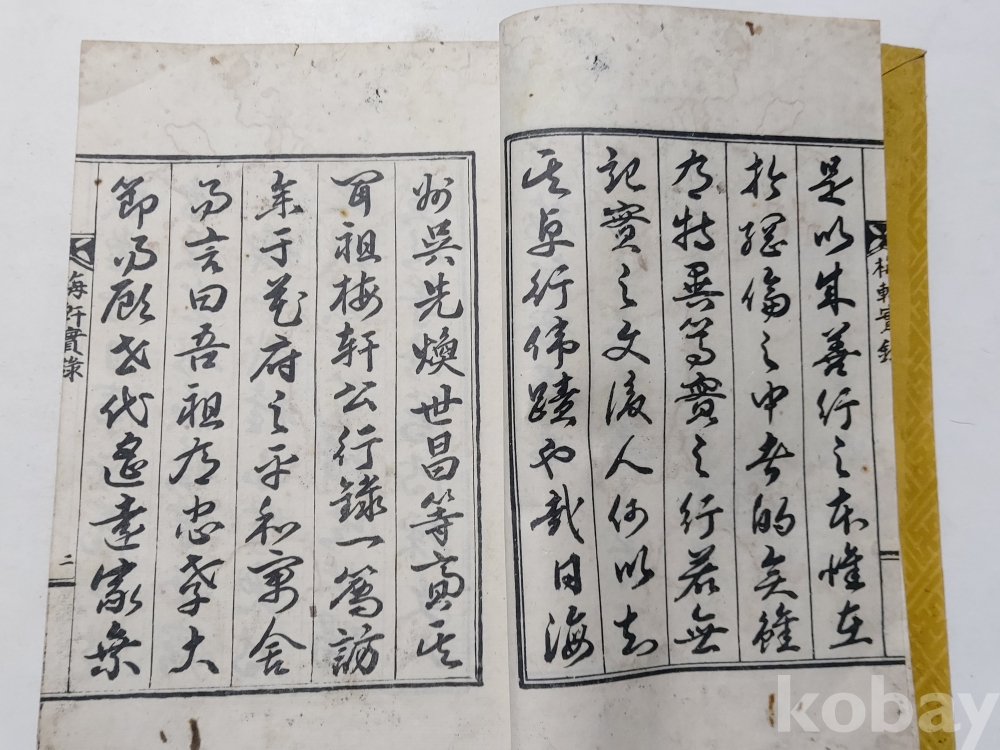 梅軒實錄
是以求善行之本惟在
於綱倫之中者的矣雖
有特異篤實之行若無
記實之文後人何以知
其卓行偉蹟也哉日海
州吳先煥世昌等賫其
祖梅軒公行錄一篇訪
余于花府之平和寓舍
而言曰吾祖有忠孝大
節而顧世代遙遠家乘
梅軒實錄
二
kobay